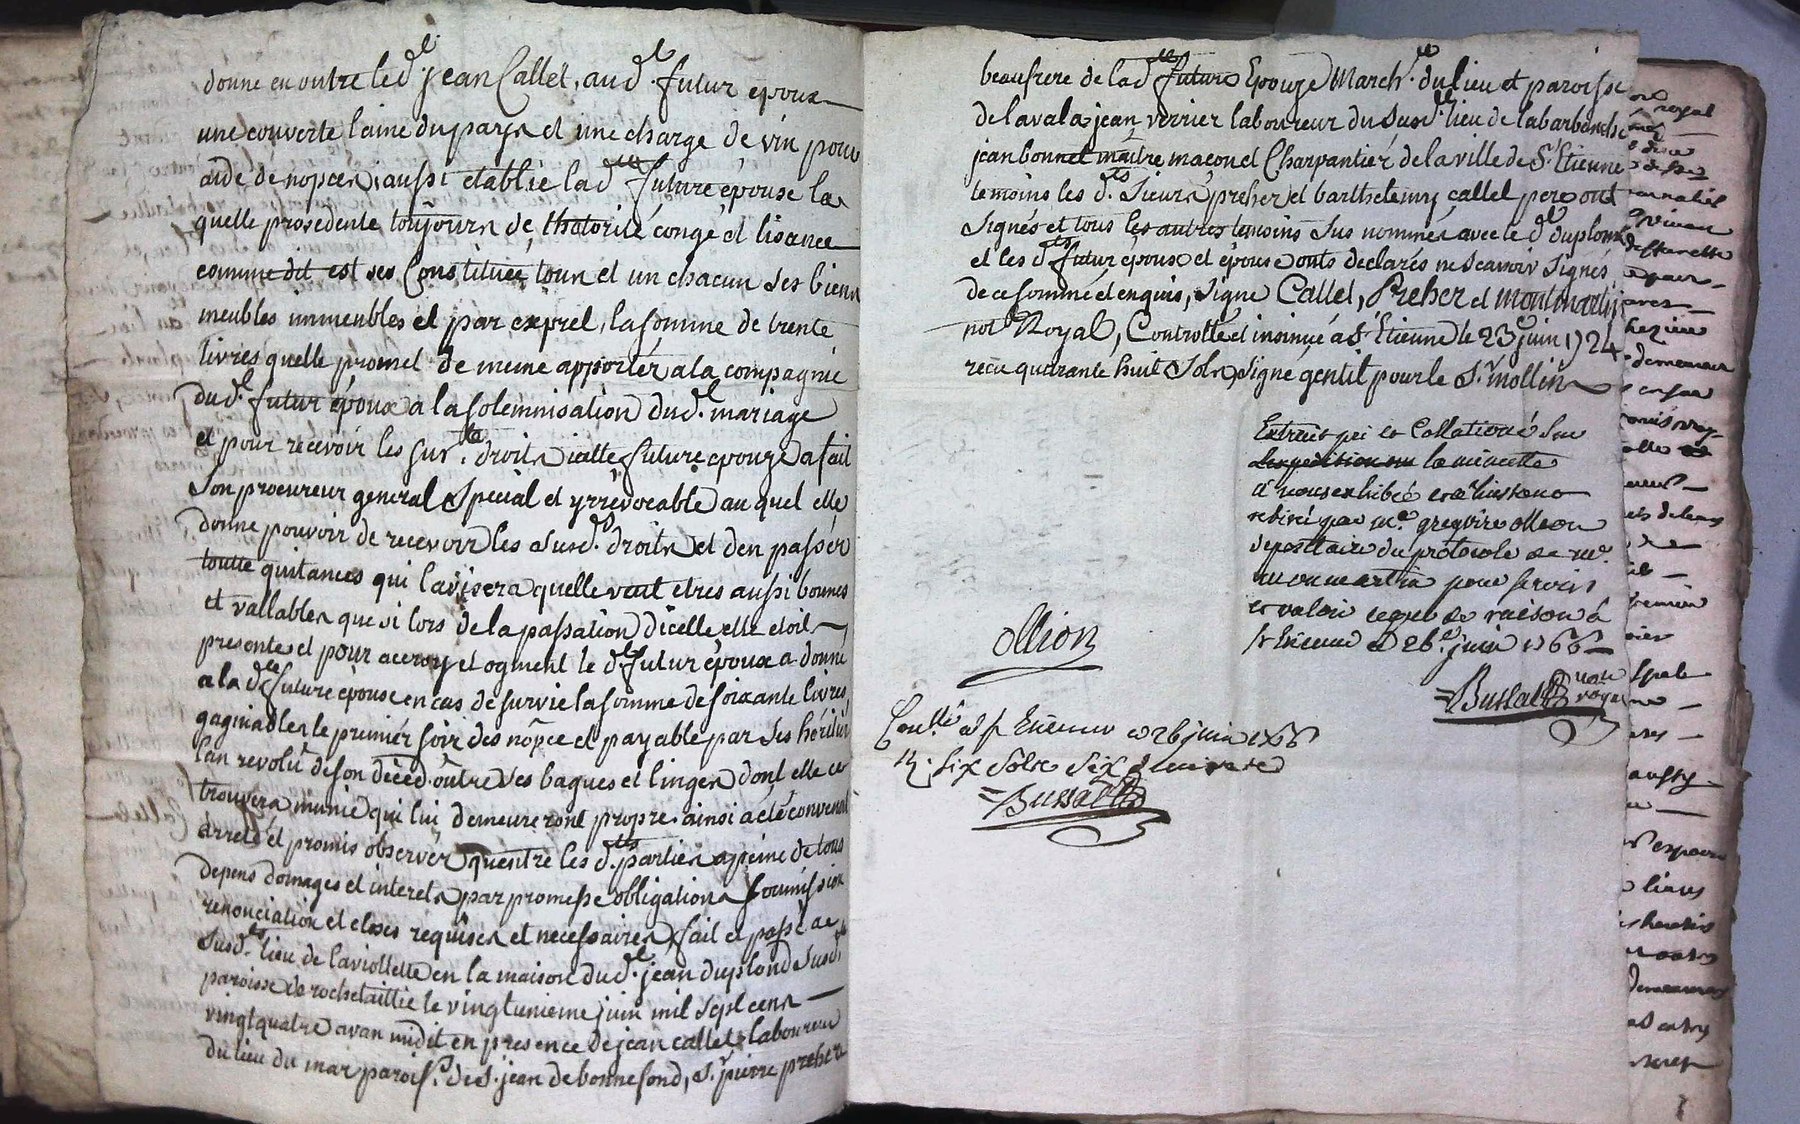 donne en outre led.t jean Callet, aud.t futur epoux
une couverte laine du pays et une charge de vin pour
aide de nopces, aussi etablie lad.te future epouse la
quelle procedente toujours de lhotorité congé et lisance
comme dit est ses Constituée tous et un chacun ses biens
meubles immeubles et par exprel, la somme de trente
livres quelle promet de meme apporter a la compagnie
dud.t futur epoux a la solemnisation dud.t mariage
et pour recevoir les sus.ts droits icelle future epouze a fait
Son procureur general Special et yrrévocable au quel elle
donne pouvoir de recevoir les susd.ts droits et den passer
toutte quitances qui lavisera quelle veut etres aussi bonnes
et vallables que si lors de la passation dicelle elle etoit
presente et pour accroy et ogment le d.t futur époux a donné
a la d.te future epouse en cas de survie la somme de soixante livres
gagniables le premier soir des nopce et payable par ses héritiers
lan revolu de son déced. outre ses bagues et linges dont elle ce
trouvera munie qui lui demeureront propre. ainsi a eté convenu
arreté et promis observer quentre les d.ttes parties a peine de tous
depens domages et interets par promesse obligations soumission
renonciation et closes requises et necessaires, fait et passé au
susd.t lieu de laviollette en la maison dud.t jean duplond susd.te
paroisse de rochetaillie le vingtunieme juin mil sept cens
vingt quatre avan midit en presence de jean callet laboureur
du lieu du mar parois.se de S.t jean de bonnefond, S.r pierre preher
beaufrere de la d.te future Epouze March.t du lieu et paroisse
de lavala jean verrier laboureur du susd.t lieu de labarbanche
jean bonnet maitre maçon et Charpantier de la ville de S.t Etienne
temoins les d.ts Sieurs preher et barthelemy callet pere ont
Signés et tous les autres temoins sus nommés avec le d.t duplond
et les d.ts futur epoux et epouse onts declarés ne scavoir signés
de ce sommé et enquis, signe Callet, Preher et montmartin
not Royal, Controllé et insinué a S.t Etienne le 23.e juin 1724
recu quarante huit sols, signé gentil pour le S.r mollin
Extrait pri et Collationé sur
Lexpedition ou la minutte
à nous exhibée et à linstant
retiré par m.e gregoire ollion
depositaire du protocole de m.e
monmartin pour servir
et valoir ce que de raison à
st Etienne le 26.e juin 1766
ollion
=Bussat
not
royal
Con.llé à st Etienne ce 26 juin 1766
R. six sols six deniers
=Bussat